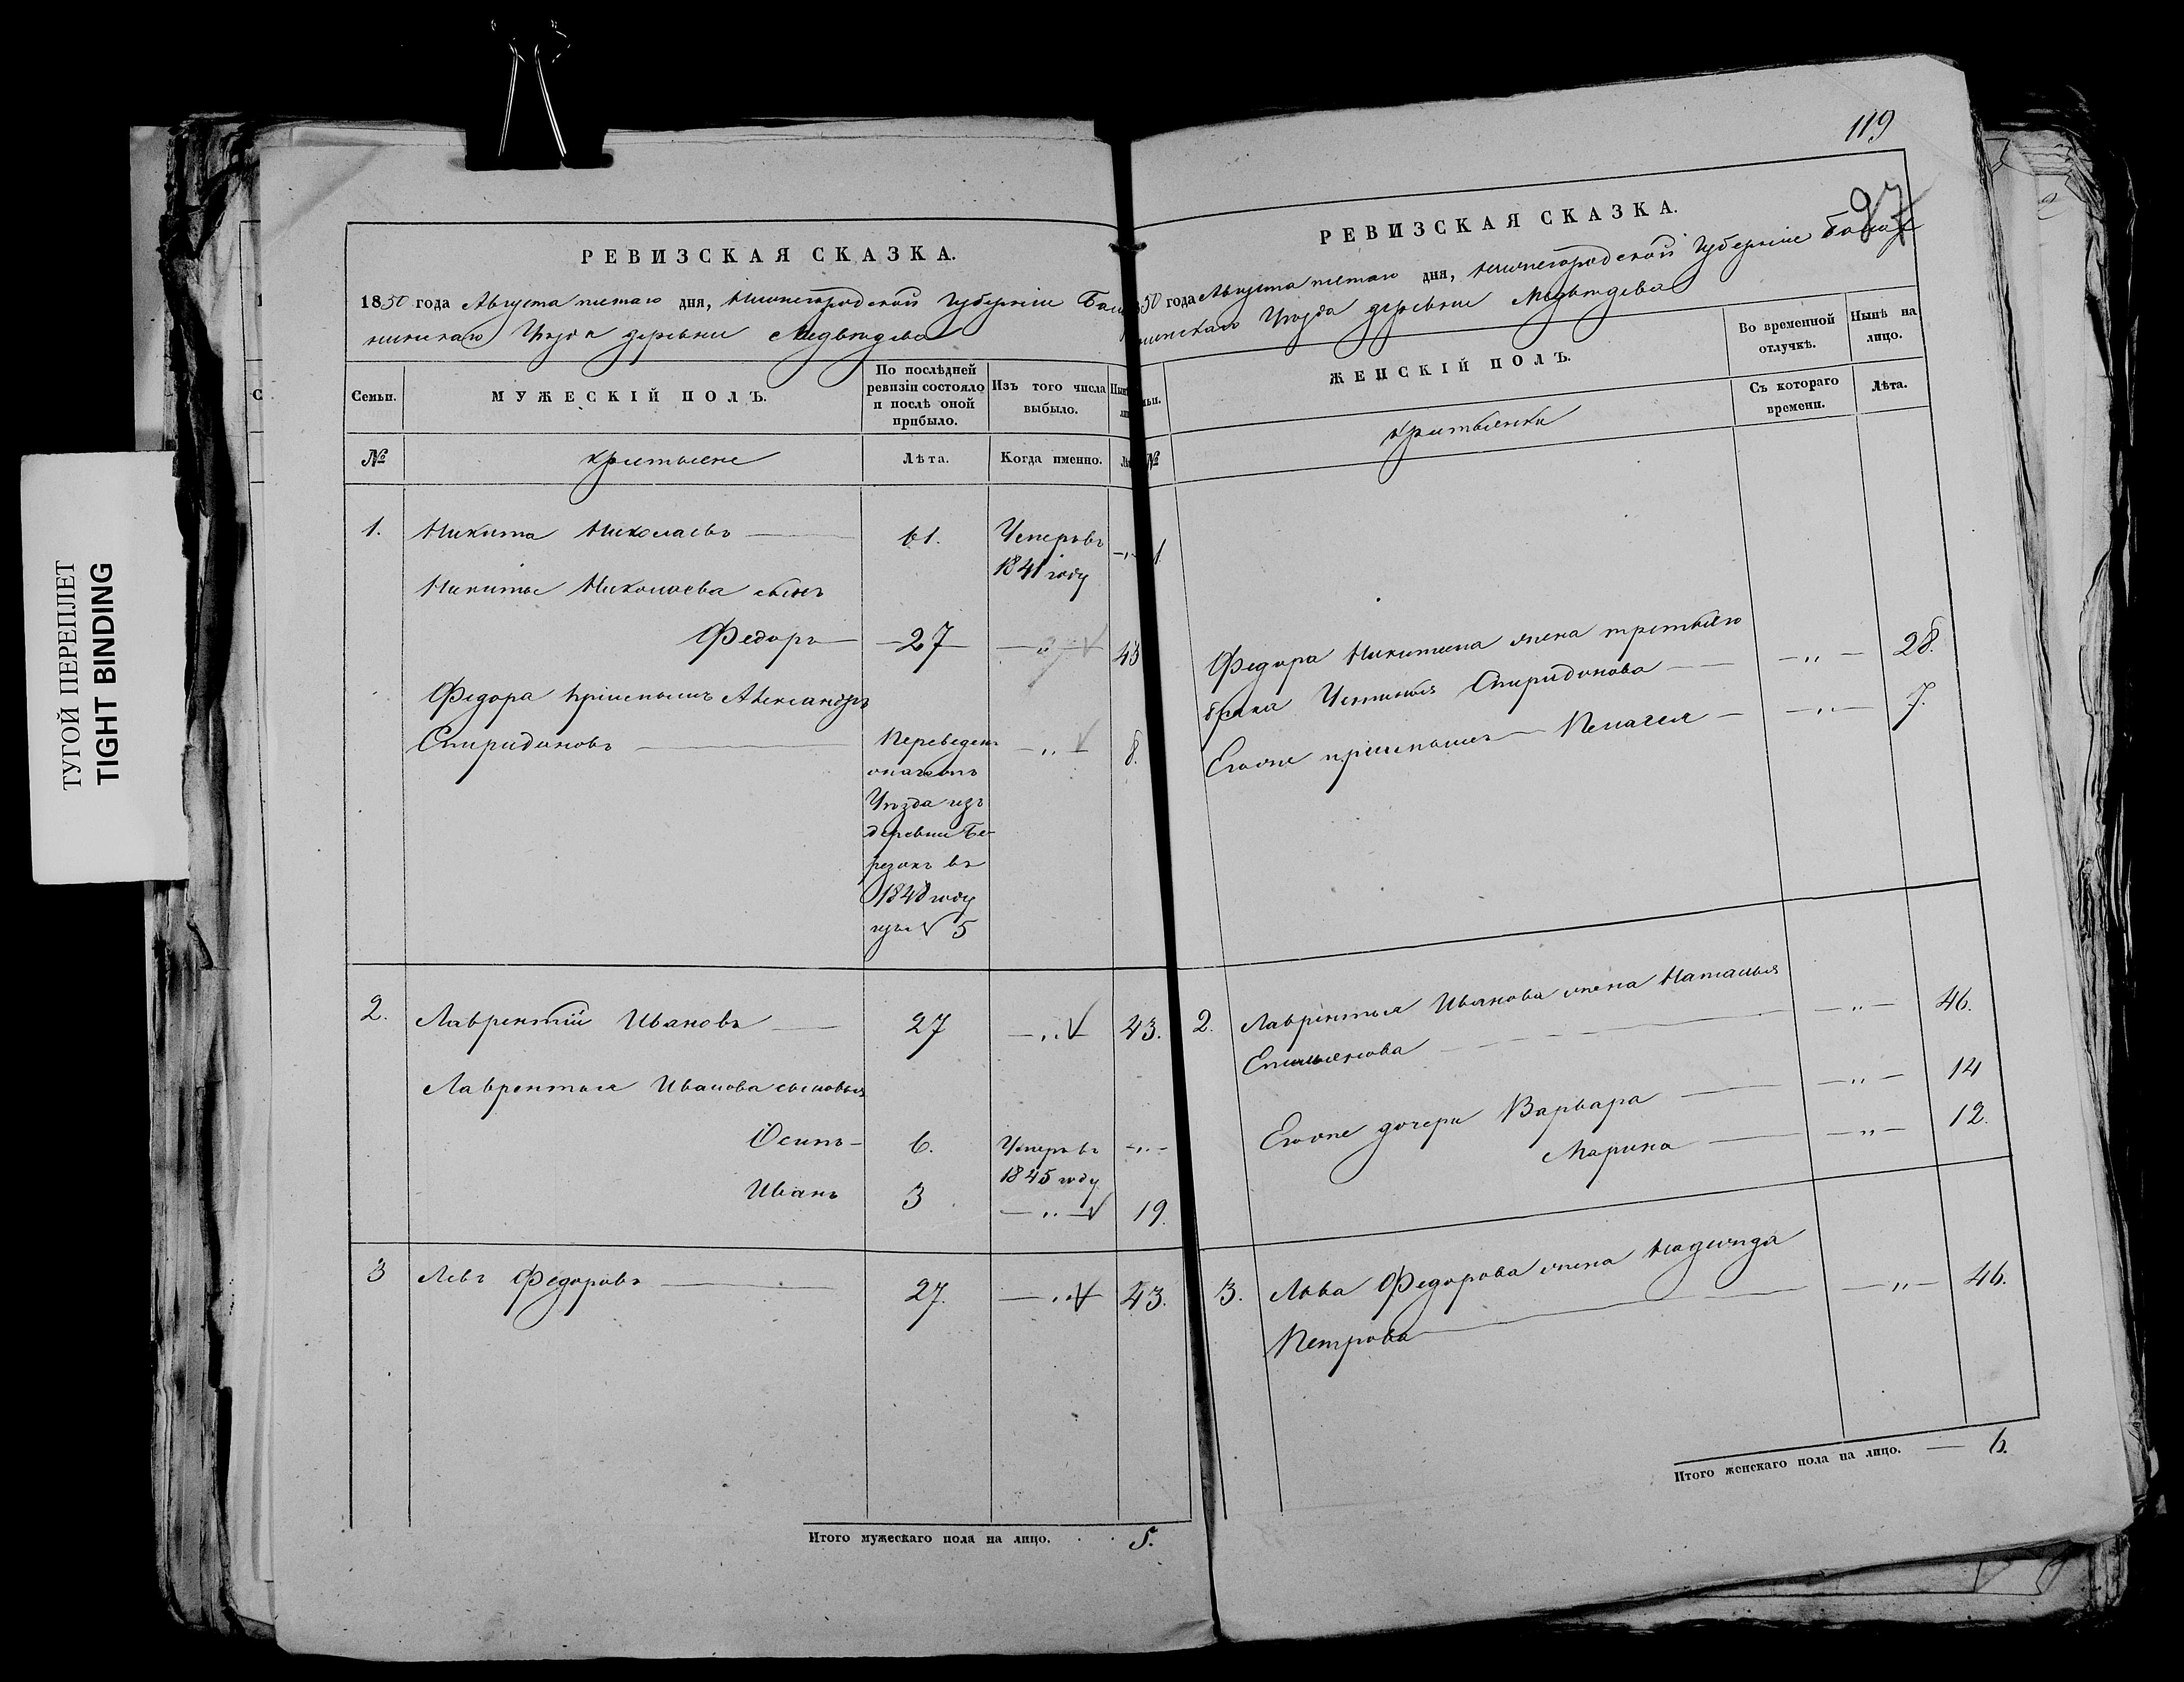 ТУГОЙ ПЕРЕПЛЕТ
TIGHT BINDING
РЕВИЗСКАЯ СКАЗКА.
1850 года Августа пятаго дня, Нижнегородской Губерніи Бала
хнинскаго Уѣзда деревни Медвѣдева
Семьи.
МУЖЕСКІЙ ПОЛЪ.
По послѣдней
ревизіи состояло
и послѣ оной
прибыло.
Изъ того числа
выбыло.
№
крестьяне
Лѣта.
Когда именно.
1. Никита Николаевъ 61. Умеръ въ
1841 году
Никиты Николаева сынъ
Федоръ 27 43
Федора пріемышъ Александръ
Спиридоновъ Переведенъ 8.
Уѣзда изъ
деревни Бе-
резокъ въ
1848 году
изъ № 5
2. Лаврентій Ивановъ 27 43.
Лаврентья Иванова сыновья
Осипъ 6. Умеръ въ
1845 году
Иванъ 3 19.
3 Левъ Федоровъ 27. 43.
Итого мужескаго пола на лицо. 5.
119
97
РЕВИЗСКАЯ СКАЗКА.
50 года Августа пятаго дня, Нижегородской Губерніи Балах
нинскаго Уѣзда деревни Медвѣдева
ЖЕНСКІЙ ПОЛЪ.
Во временной
отлучкѣ.
Нынѣ на
лицо.
Съ котораго
времени.
Лѣта.
№
крестьянки
1.
Федора Никитина жена третьяго
брака Устинья Спиридонова 28.
Егоже пріемышъ Пелагея 7.
2. Лаврентья Иванова жена Наталья
Емельянова 46.
Егоже дочери Варвара 14
Марина 12.
3. Льва Федорова жена Надежда
Петрова 46.
Итого женскаго пола на лицо. 6.